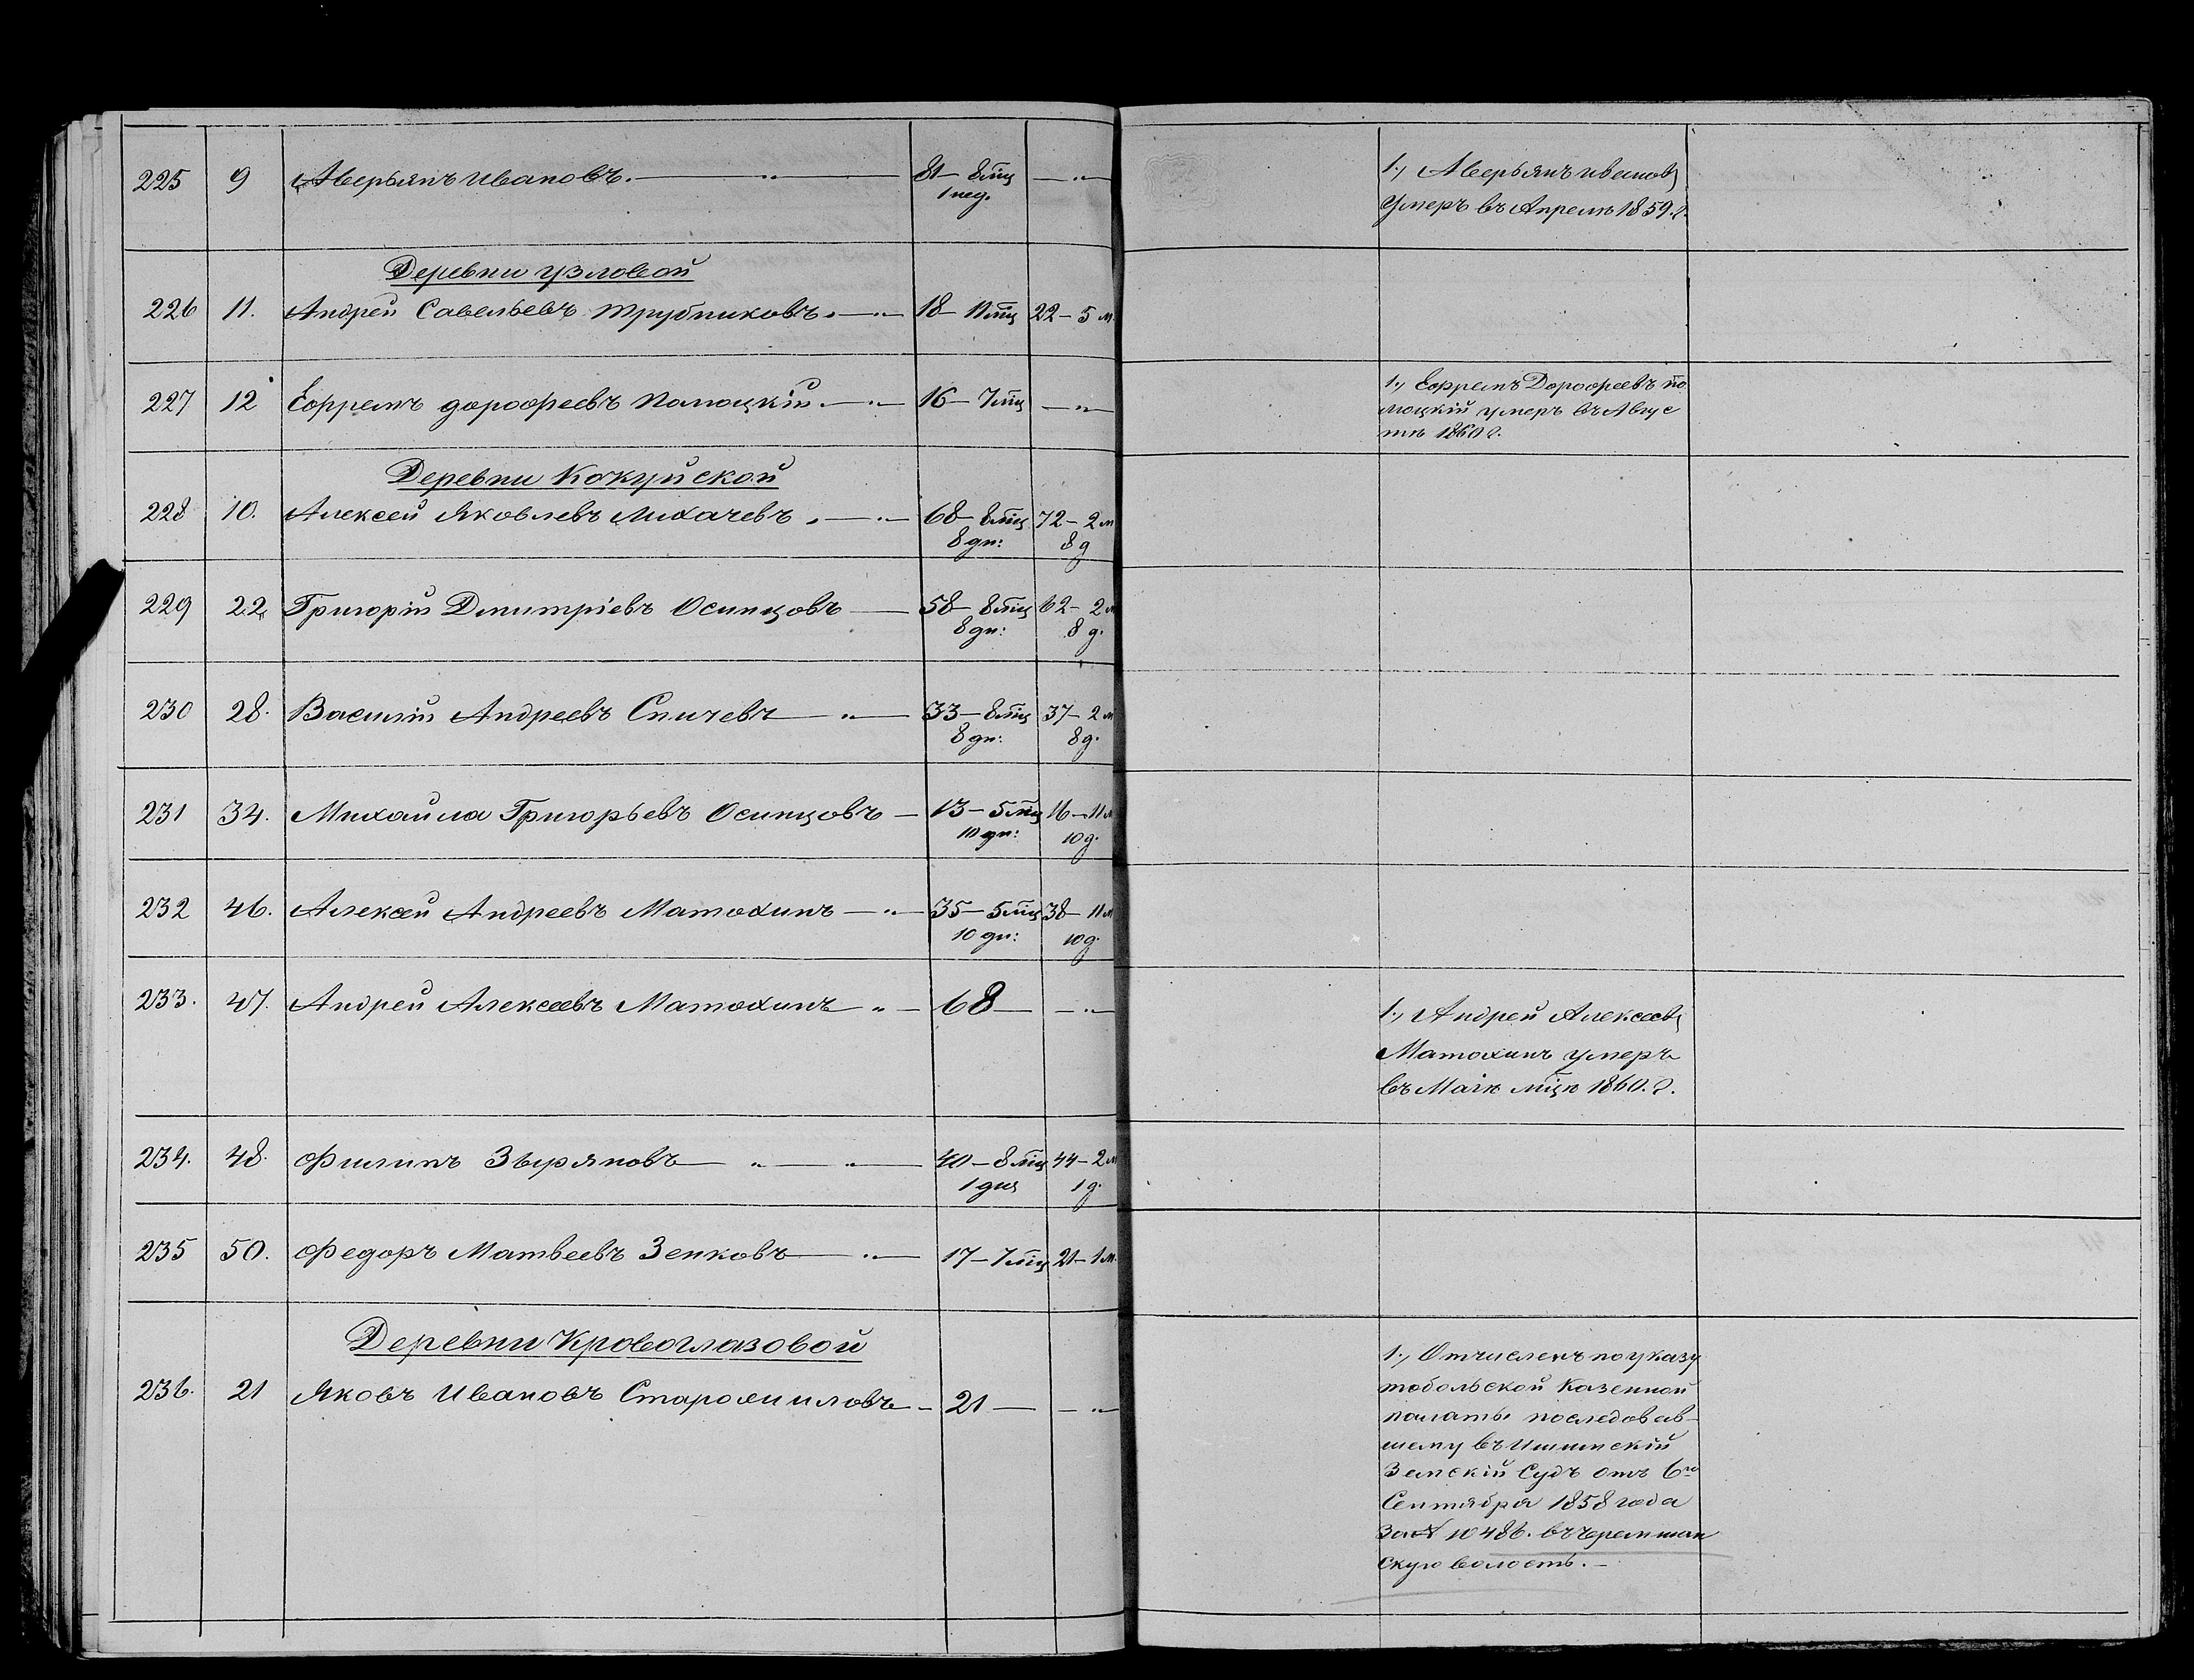 225 9 Аверьянъ Ивановъ. — „ — 81 — 8 мц — „ —
1 нед.
1., Аверьянъ Ивановъ
умеръ въ Апреле 1859. г.
Деревни Узловой
226 11. Андрей Савельевъ Трубниковъ. — „ — 18 — 11 мц 22 — 5 м.
227 12 Ефремъ Дорофеевъ Полоцкій. — „ — 16 — 7 мц — „ —
1., Ефремъ Дорофеевъ По
лоцкій умеръ въ Авгус
те 1860 г.
Деревни Кокуйской
228 10. Алексей Яковлевъ Лихачевъ. — „ — 68 — 8 мц 72 — 2 м
8 дн: 8 д
229 22 Григорій Дмитріевъ Осинцовъ — 58 — 8 мц 62 — 2 м
8 дн: 8 д.
230 28. Василій Андреевъ Спичевъ — „ — 33 — 8 мц 37 — 2 м
8 дн: 8 д.
231 34. Михайла Григорьевъ Осинцовъ — 13 — 5 мц 16 — 11 м
10 дн: 10 д.
232 46. Алексей Андреевъ Матохинъ — „ — 35 — 5 мц 38 — 11 м
10 дн: 10 д.
233. 47. Андрей Алексеевъ Матохинъ „ — 68 — — „ —
1., Андрей Алексеевъ
Матохинъ умеръ
въ Маіе мце 1860. г.
234. 48. Филипъ Зыряновъ — „ — „ — 40 — 8 мц 44 — 2 м
1 дня 1 д.
235 50. Федоръ Матвеевъ Зенковъ — „ — 17 — 7 мц 21 — 1 м.
Деревни Кровоглазовой
236. 21 Яковъ Ивановъ Старомиловъ — 21 — — „ —
1., Отчисленъ по указу
тобольской Казенной
палаты последовав-
шему въ Ишимскій
Земскій Судъ отъ 6го
Сентября 1858 года
за № 10486. въ Черемшан
скую волость. —